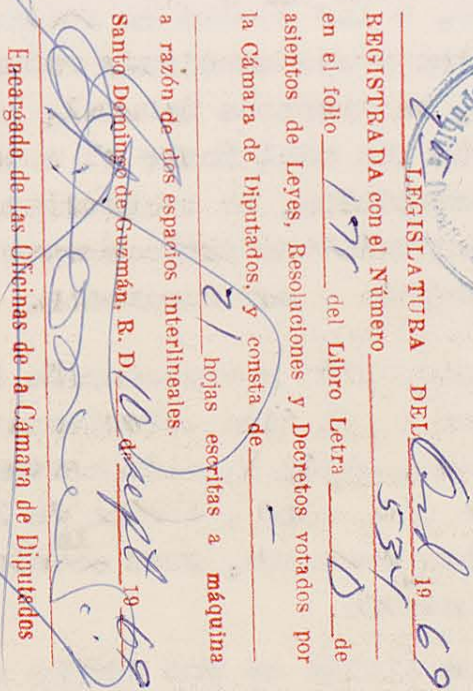 LEGISLATURA DEL Ord 1969
REGISTRADA con el Número 534
en el folio 197 del Libro Letra D de
asientos de Leyes, Resoluciones y Decretos votados por
la Cámara de Diputados, y consta de
21 hojas escritas a máquina
a razón de dos espacios interlineales.
Santo Domingo de Guzmán, R. D. 10 de sept 1969
Encargado de las Oficinas de la Cámara de Diputados